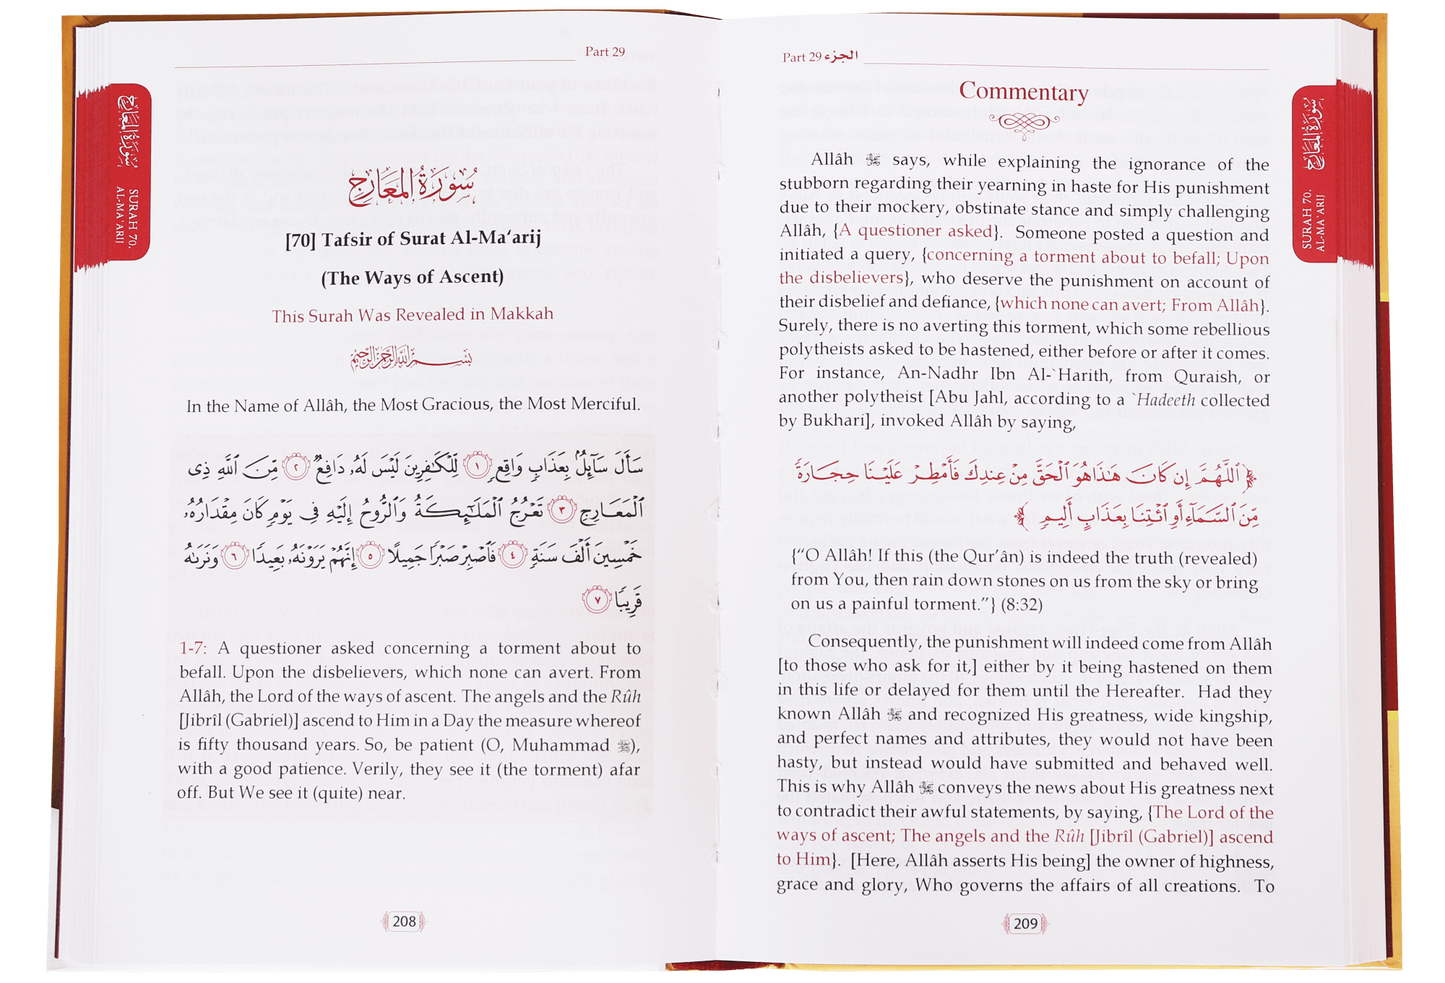 Part 29
سُورَةُ المَعَارِجِ
SURAH 70.
AL-MA'ARIJ
سُورَةُ المَعَارِجِ
[70] Tafsir of Surat Al-Ma‘arij
(The Ways of Ascent)
This Surah Was Revealed in Makkah
بِسْمِ اللَّهِ الرَّحْمَنِ الرَّحِيمِ
In the Name of Allâh, the Most Gracious, the Most Merciful.
سَأَلَ سَآئِلٌۢ بِعَذَابٍ وَاقِعٍ ١ لِّلْكَٰفِرِينَ لَيْسَ لَهُۥ دَافِعٌ ٢ مِّنَ ٱللَّهِ ذِى
ٱلْمَعَارِجِ ٣ تَعْرُجُ ٱلْمَلَٰٓئِكَةُ وَٱلرُّوحُ إِلَيْهِ فِى يَوْمٍ كَانَ مِقْدَارُهُۥ
خَمْسِينَ أَلْفَ سَنَةٍ ٤ فَٱصْبِرْ صَبْرًا جَمِيلًا ٥ إِنَّهُمْ يَرَوْنَهُۥ بَعِيدًا ٦ وَنَرَىٰهُ
قَرِيبًا ٧
1-7: A questioner asked concerning a torment about to
befall. Upon the disbelievers, which none can avert. From
Allâh, the Lord of the ways of ascent. The angels and the Rûh
[Jibrîl (Gabriel)] ascend to Him in a Day the measure whereof
is fifty thousand years. So, be patient (O, Muhammad ﷺ),
with a good patience. Verily, they see it (the torment) afar
off. But We see it (quite) near.
208
Part 29 الجزء
Commentary
Allâh ﷻ says, while explaining the ignorance of the
stubborn regarding their yearning in haste for His punishment
due to their mockery, obstinate stance and simply challenging
Allâh, {A questioner asked}. Someone posted a question and
initiated a query, {concerning a torment about to befall; Upon
the disbelievers}, who deserve the punishment on account of
their disbelief and defiance, {which none can avert; From Allâh}.
Surely, there is no averting this torment, which some rebellious
polytheists asked to be hastened, either before or after it comes.
For instance, An-Nadhr Ibn Al-`Harith, from Quraish, or
another polytheist [Abu Jahl, according to a `Hadeeth collected
by Bukhari], invoked Allâh by saying,
﴿ٱللَّهُمَّ إِن كَانَ هَٰذَا هُوَ ٱلْحَقَّ مِنْ عِندِكَ فَأَمْطِرْ عَلَيْنَا حِجَارَةً
مِّنَ ٱلسَّمَآءِ أَوِ ٱئْتِنَا بِعَذَابٍ أَلِيمٍ﴾
{“O Allâh! If this (the Qur’ân) is indeed the truth (revealed)
from You, then rain down stones on us from the sky or bring
on us a painful torment.”} (8:32)
Consequently, the punishment will indeed come from Allâh
[to those who ask for it,] either by it being hastened on them
in this life or delayed for them until the Hereafter. Had they
known Allâh ﷻ and recognized His greatness, wide kingship,
and perfect names and attributes, they would not have been
hasty, but instead would have submitted and behaved well.
This is why Allâh ﷻ conveys the news about His greatness next
to contradict their awful statements, by saying, {The Lord of the
ways of ascent; The angels and the Rûh [Jibrîl (Gabriel)] ascend
to Him}. [Here, Allâh asserts His being] the owner of highness,
grace and glory, Who governs the affairs of all creations. To
209
سُورَةُ المَعَارِجِ
SURAH 70.
AL-MA'ARIJ